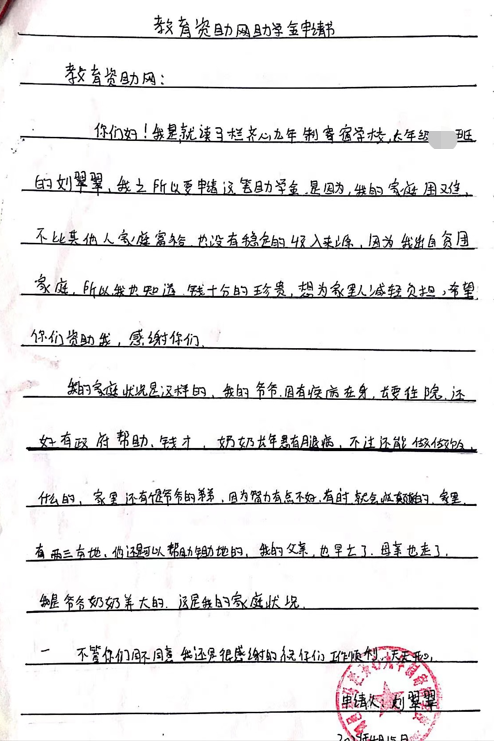 教育资助网助学金申请书
教育资助网：
你们好！我是就读于栏齐心九年制寄宿学校，六年级 班
的刘翠翠，我之所以要申请这笔助学金，是因为，我的家庭困难，
不比其他人家庭富裕，也没有稳定的收入来源，因为我出自贫困
家庭，所以我也知道，钱十分的珍贵，想为家里人减轻负担，希望
你们资助我，感谢你们。
我的家庭状况是这样的，我的爷爷，因有疾病在身，去要住院，还
好有政府帮助，钱才，奶奶长年患有腿病，不过还能做做饭，
什么的，家里还有爷爷的 ，因为智力有点不好，有时就会 的，家里
有两三亩地，他还可以帮助锄地的，我的父亲，也早亡了，母亲也走了，
我是爷爷奶奶养大的，这是我的家庭状况。
一 不管你们同不同意我还是很感谢的祝你们工作顺利，天天 。
申请人：刘翠翠
4月15日